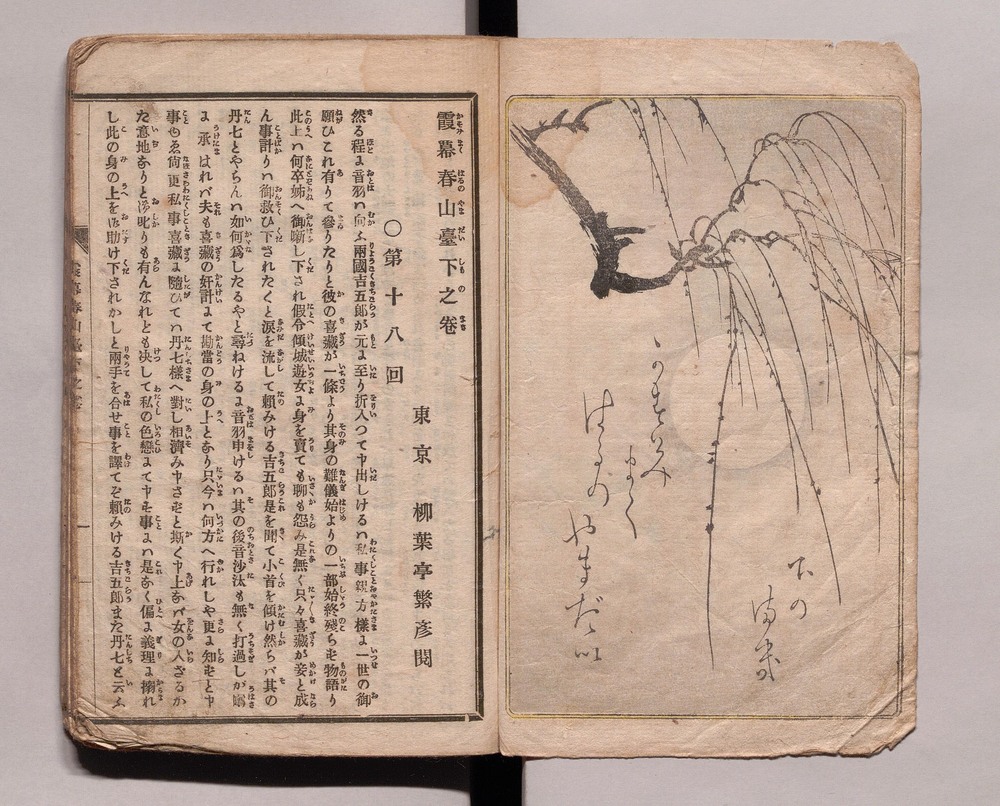 かすみ
まく
はるの
やまだい
下の
満き
霞幕春山臺下之卷
東京 柳葉亭繁彦閲
○第十八回
然る程に音羽ハ向ふ兩國吉五郎が元に至り折入つて申出しけるハ私事親方樣に一世の御
願ひこれ有りて參りたりと彼の喜藏が一條より其身の難儀始よりの一部始終殘らず物語り
此上ハ何卒姉へ御噺し下され假令傾城遊女に身を賣ても聊も怨み是無く只々喜藏が妾と成
ん事計りハ御救ひ下されたくと涙を流して頼みける吉五郎是を聞て小首を傾け然らバ其の
丹七とやらんハ如何爲したるやと尋ねけるに音羽申けるハ其の後音沙汰も無く打過しが
に承はれバ夫も喜藏の奸計にて勘當の身の上となり只今ハ何方へ行れしや更に知ずと申
事ゆゑ尙更私事喜藏に隨ひてハ丹七樣へ對し相濟み申さずと斯く申上なバ女の人ざるか
た意地なりと御叱りも有んなれども决して私の色戀にて申す事にハ是なく偏に義理に搦れ
し此の身の上を御助け下されかしと兩手を合せ事を譯てぞ頼みける吉五郎また丹七と云ふ